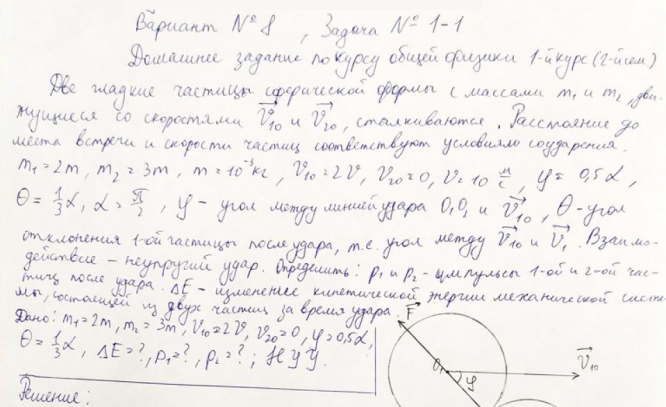 Вариант № 8 , Задача № 1-1
Домашнее задание по курсу общей физики 1-й курс (2-й сем)
Две гладкие частицы сферической формы с массами m₁ и m₂, дви-
жущиеся со скоростями V⃗₁₀ и V⃗₂₀, сталкиваются. Расстояние до
места встречи и скорости частиц соответствуют условиям соударения.
m₁=2m, m₂=3m, m=10⁻³кг, V₁₀=2V, V₂₀=0, V=10 м/с, φ=0,5α,
Θ=1/3α, α=π/2, φ – угол между линией удара O₁O₂ и V⃗₁₀, Θ-угол
отклонения 1-ой частицы после удара, т.е. угол между V⃗₁₀ и V⃗₁. Взаимо-
действие – неупругий удар. Определить: p₁ и p₂ - импульсы 1-ой и 2-ой час-
тиц после удара. ΔE – изменение кинетической энергии механической систе-
мы, состоящей из двух частиц за время удара.
Дано: m₁=2m, m₂=3m, V₁₀=2V, V₂₀=0, φ=0,5α,
F⃗
Θ=1/3α, ΔE=?, p₁=?, p₂=?; НУУ.
O₁ φ V⃗₁₀
Решение: